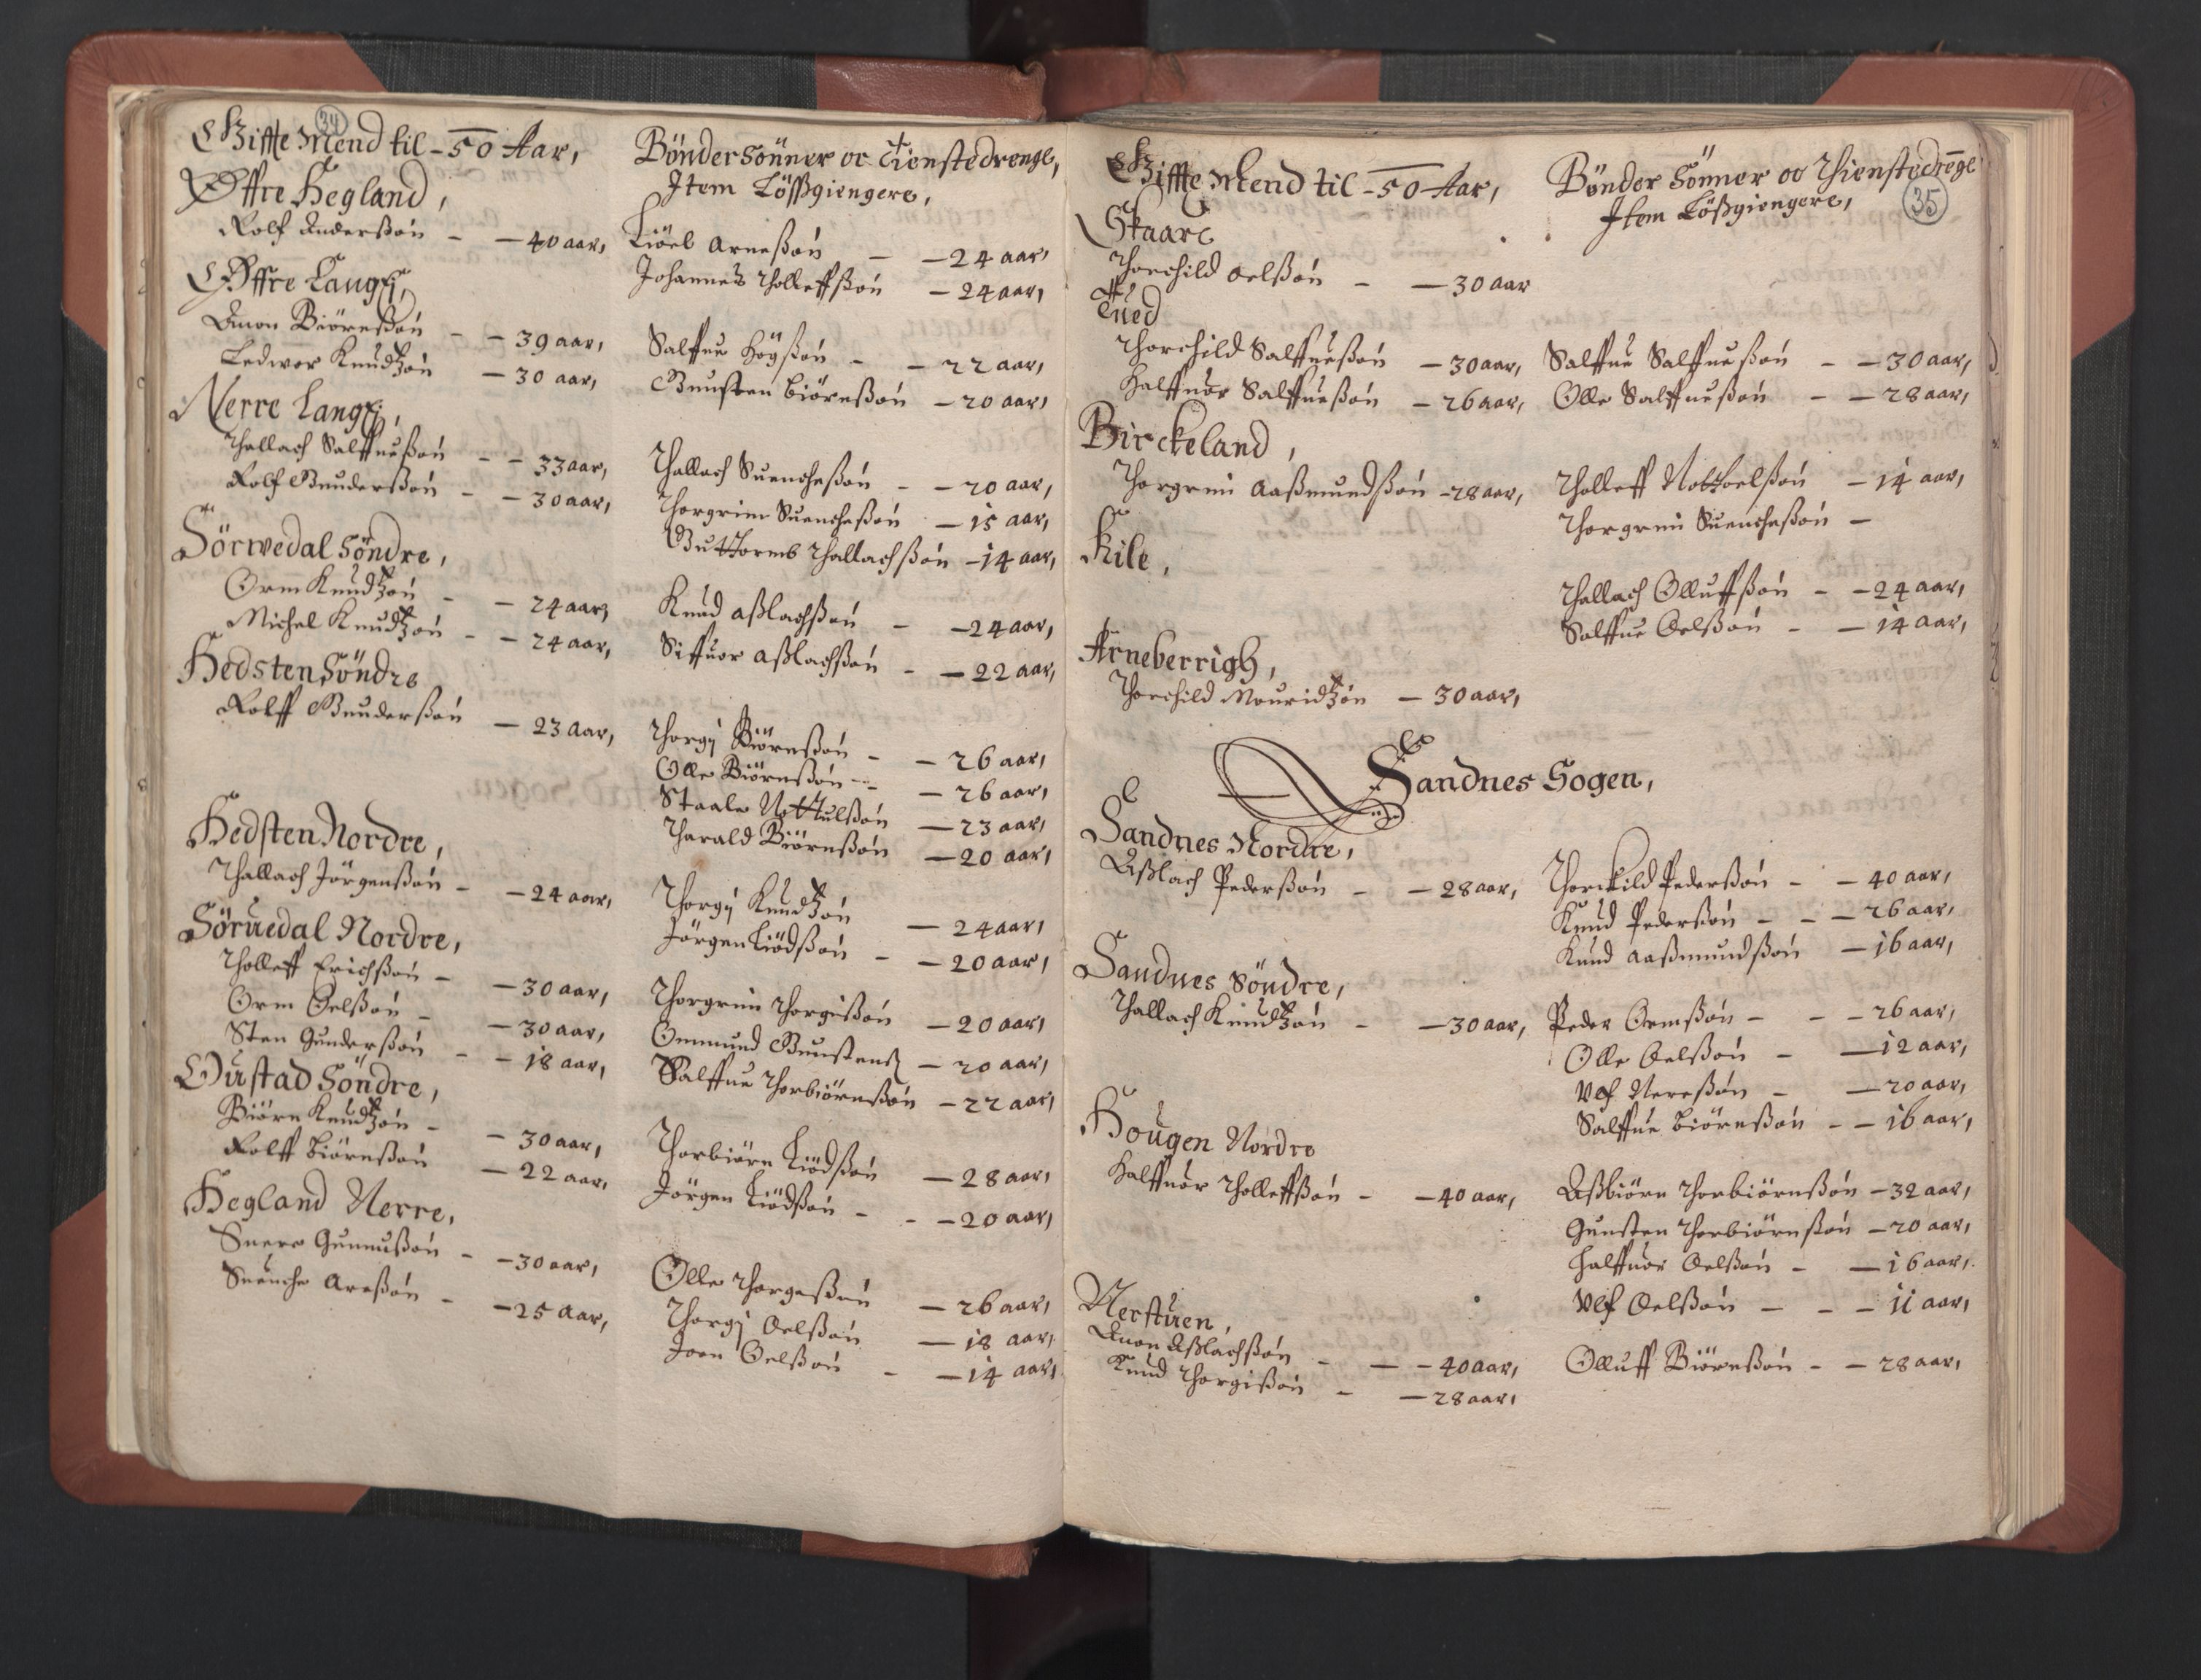 34
Giffte Mend til - 50 Aar,
Øffre Hegland,
Rolf Anderßøn - - 40 aar,
Øffre Langej,
Amon Biörnßøn - - 39 aar,
Ledwor Knudtzøn - 30 aar,
Nerre Langej,
Thallach Salffueßøn - - 33 aar,
Rolf Gunderßøn - - 30 aar,
Sörwedal Söndre,
Orm Knudtzøn - - 24 aar,
Michel Knudtzøn - - 24 aar,
Hedsten Söndre
Rolff Gunderßøn - 23 aar,
Hedsten Nordre,
Thallach Jörgenßøn - - 24 aar,
Söruedal Nordre,
Tholleff Erichßøn - - 30 aar,
Orm Oelßøn - - 30 aar,
Sten Gunderßøn - - 18 aar,
Oustad Söndre,
Biörn Knudtzøn - - 30 aar,
Rolff Biörnßøn - 22 aar,
Hegland Nerre,
Suero Gunnußøn - - 30 aar,
Suenche Areßøn - - 25 aar,
Bönder Sönner oc Tienstedrenge,
Item Lößgiengere,
Kiöel Arneßøn - - 24 aar,
Johannes Tholleffßøn - 24 aar,
Salffue Högßøn - - 22 aar,
Gunsten Biörnßøn - 20 aar,
Thallach Suencheßøn - - 20 aar,
Thorgrim Suencheßøn - 15 aar,
Guttorms Thallachßøn - 14 aar,
Knud Aßlachßøn - - 24 aar,
Siffuor Aßlachßøn - - 22 aar,
Thorgij Biörnßøn - - 26 aar,
Olle Biörnßøn - - 26 aar,
Staale Nottulßøn - 23 aar,
Tharald Biörnßøn - 20 aar,
Thorgij Knudtzøn - 24 aar,
Jörgen Kiödßøn - - 20 aar,
Thorgrim Thorgißøn - 20 aar,
Gunmund Gunstenß - 20 aar,
Salffue Thorbiörnßøn - 22 aar,
Thorbiörn Kiödßøn - 28 aar,
Jörgen Kiödßøn - - - 20 aar,
Olle Thorgeßøn - 26 aar,
Thorgij Oelßøn - 18 aar,
Joen Oelßøn - - 14 aar,
35
Giffte Mend til - 50 Aar,
Skaare
Thorchild Oelßøn - - 30 aar
Tued
Thorchild Salffueßøn - 30 aar,
Halffuor Salffueßøn - 26 aar,
Birckeland,
Thorgrim Aaßmundßøn - 28 aar,
Kile,
Arneberrigh,
Thorchild Mouridtzøn - 30 aar,
Sandnes Sogen,
Sandnes Nordre,
Aßlach Pederßøn - - 28 aar,
Sandnes Söndre,
Thallach Knudtzøn - - 30 aar,
Hougen Nordre
Halffuor Tholleffßøn - - 40 aar,
Nerstuen,
Anon Aßlachßøn - - - 40 aar,
Knud Thorgißøn - - 28 aar,
Bönder Sönner oc Thienstedrenge
Item Lößgiengere,
Salffue Salffueßøn - - 30 aar,
Olle Salffueßøn - - 28 aar,
Tholleff Nottoelßøn - 14 aar,
Thorgrim Suencheßøn -
Thallach Olluffßøn - - 24 aar,
Salffue Oelßøn - - 14 aar,
Thorckild Pederßøn - - 40 aar,
Knud Pederßøn - - - 26 aar,
Knud Aaßmundßøn - 16 aar,
Peder Ormßøn - - - 26 aar,
Olle Oelßøn - - 12 aar,
Ulf Nereßøn - - 20 aar,
Salffue Biörnßøn - - 16 aar,
Aßbiörn Thorbiörnßøn - 32 aar,
Gunsten Thorbiörnßøn - 20 aar,
Halffuor Oelßøn - - 16 aar,
Ulf Oelßøn - - - 11 aar,
Olluff Biörnßøn - - 28 aar,